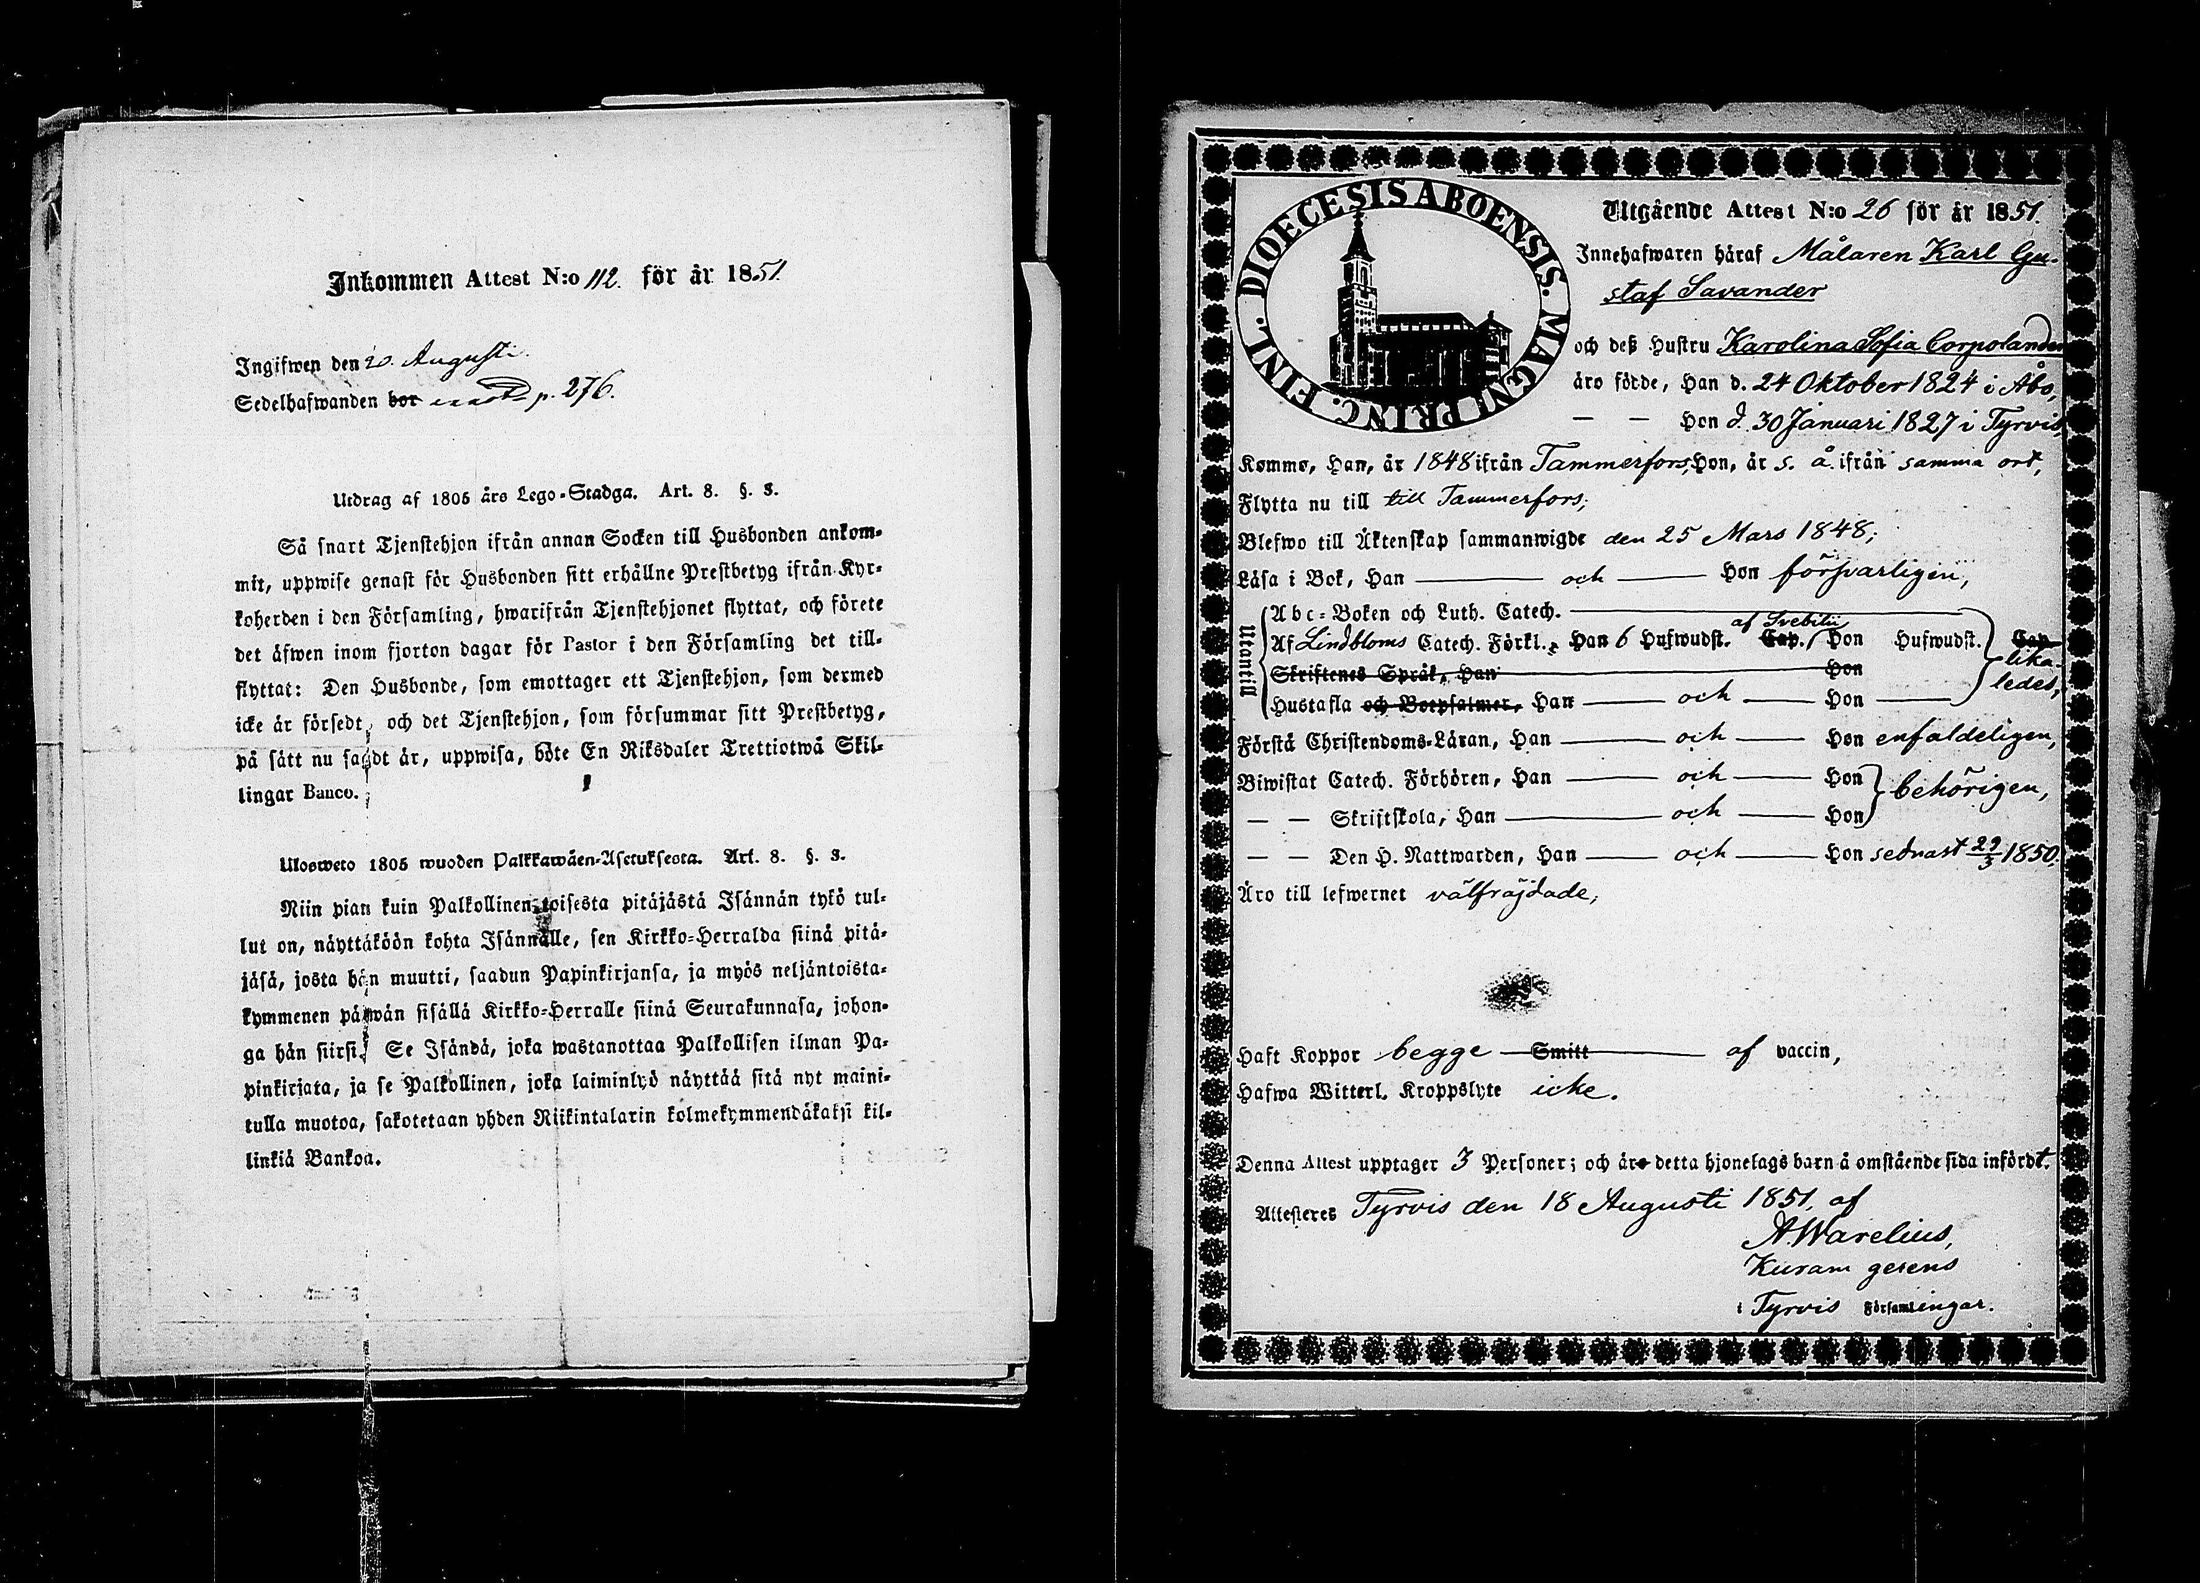 Inkommen Attest N:o 112. för år 1851.
Ingifwen den 20. Augusti.
Sedelhafwanden bor p. 276.
Utdrag af 1805 års Lego-Stadga. Art. 8. §. 3.
Så snart Tjenstehjon ifrån annan Socken till Husbonden ankom-
mit, uppwise genast för Husbonden sitt erhållne Prestbetyg ifrån Kyr-
koherden i den Församling, hwarifrån Tjenstehjonet flyttat, och förete
det äfwen inom fjorton dagar för Pastor i den Församling det till-
flyttat: Den Husbonde, som emottager ett Tjenstehjon, som dermed
icke är försedt, och det Tjenstehjon, som försummar sitt Prestbetyg,
på sätt nu sagdt är, uppwisa, böte En Riksdaler Trettiotwå Skil-
lingar Banco.
Ulosweto 1805 wuoden Palkkawäen-Asetuksesta. Art. 8. §. 3.
Niin pian kuin Palkollinen toisesta pitäjästä Isännän tykö tul-
lut on, näyttäköön kohta Isännälle, sen Kirkko-Herralda siinä pitä-
jäsä, josta hän muutti, saadun Papinkirjansa, ja myös neljäntoista-
kymmenen päiwän sisällä Kirkko-Herralle siinä Seurakunnasa, johon-
ga hän siirsi. Se Isändä, joka wastanottaa Palkollisen ilman Pa-
pinkirjata, ja se Palkollinen, joka laiminlyö näyttää sitä nyt maini-
tulla muotoa, sakotetaan yhden Riikintalarin kolmekymmendäkaksi kil-
linkiä Bankoa.
DIOECESIS ABOENSIS. MAGNI PRINC. FINL.
Utgående Attest N:o 26 för år 1851.
Innehafwaren häraf Målaren Karl Gu-
staf Savander
och deß Hustru Karolina Sofia Corpolander
äro födde, Han d. 24 Oktober 1824 i Åbo,
— — Hon d. 30 Januari 1827 i Tyrvis,
Kommo, Han, år 1848 ifrån Tammerfors, Hon, år s. å. ifrån samma ort,
Flytta nu till till Tammerfors;
Blefwo till Äktenskap sammanwigde den 25 Mars 1848;
Läsa i Bok, Han — och — Hon försvarligen,
Utantill
Abc-Boken och Luth. Catech.
af Svebilii
Af Lindbloms Catech. Förkl., Han 6 Hufwudst. Cap. Hon Hufwudst. Cap. lika-
Skriftenes Språk, Han Hon ledes,
Hustafla och Botpsalmer, Han — och — Hon
Förstå Christendoms-Läran, Han — och — Hon enfaldeligen,
Biwistat Catech. Förhören, Han — och — Hon behörigen,
— — Skriftskola, Han — och — Hon
— — Den H. Nattwarden, Han — och — Hon sednast 29/3 1850.
Äro till lefwernet välfräjdade;
Haft Koppor begge Smitt af vaccin,
Hafwa Witterl. Kroppslyte icke.
Denna Attest upptager 3 Personer; och äro detta hjonelags barn å omstående sida infördt.
Attesteres Tyrvis den 18 Augusti 1851, af
A Warelius,
Kuram gerens
i Tyrvis Församlingar.